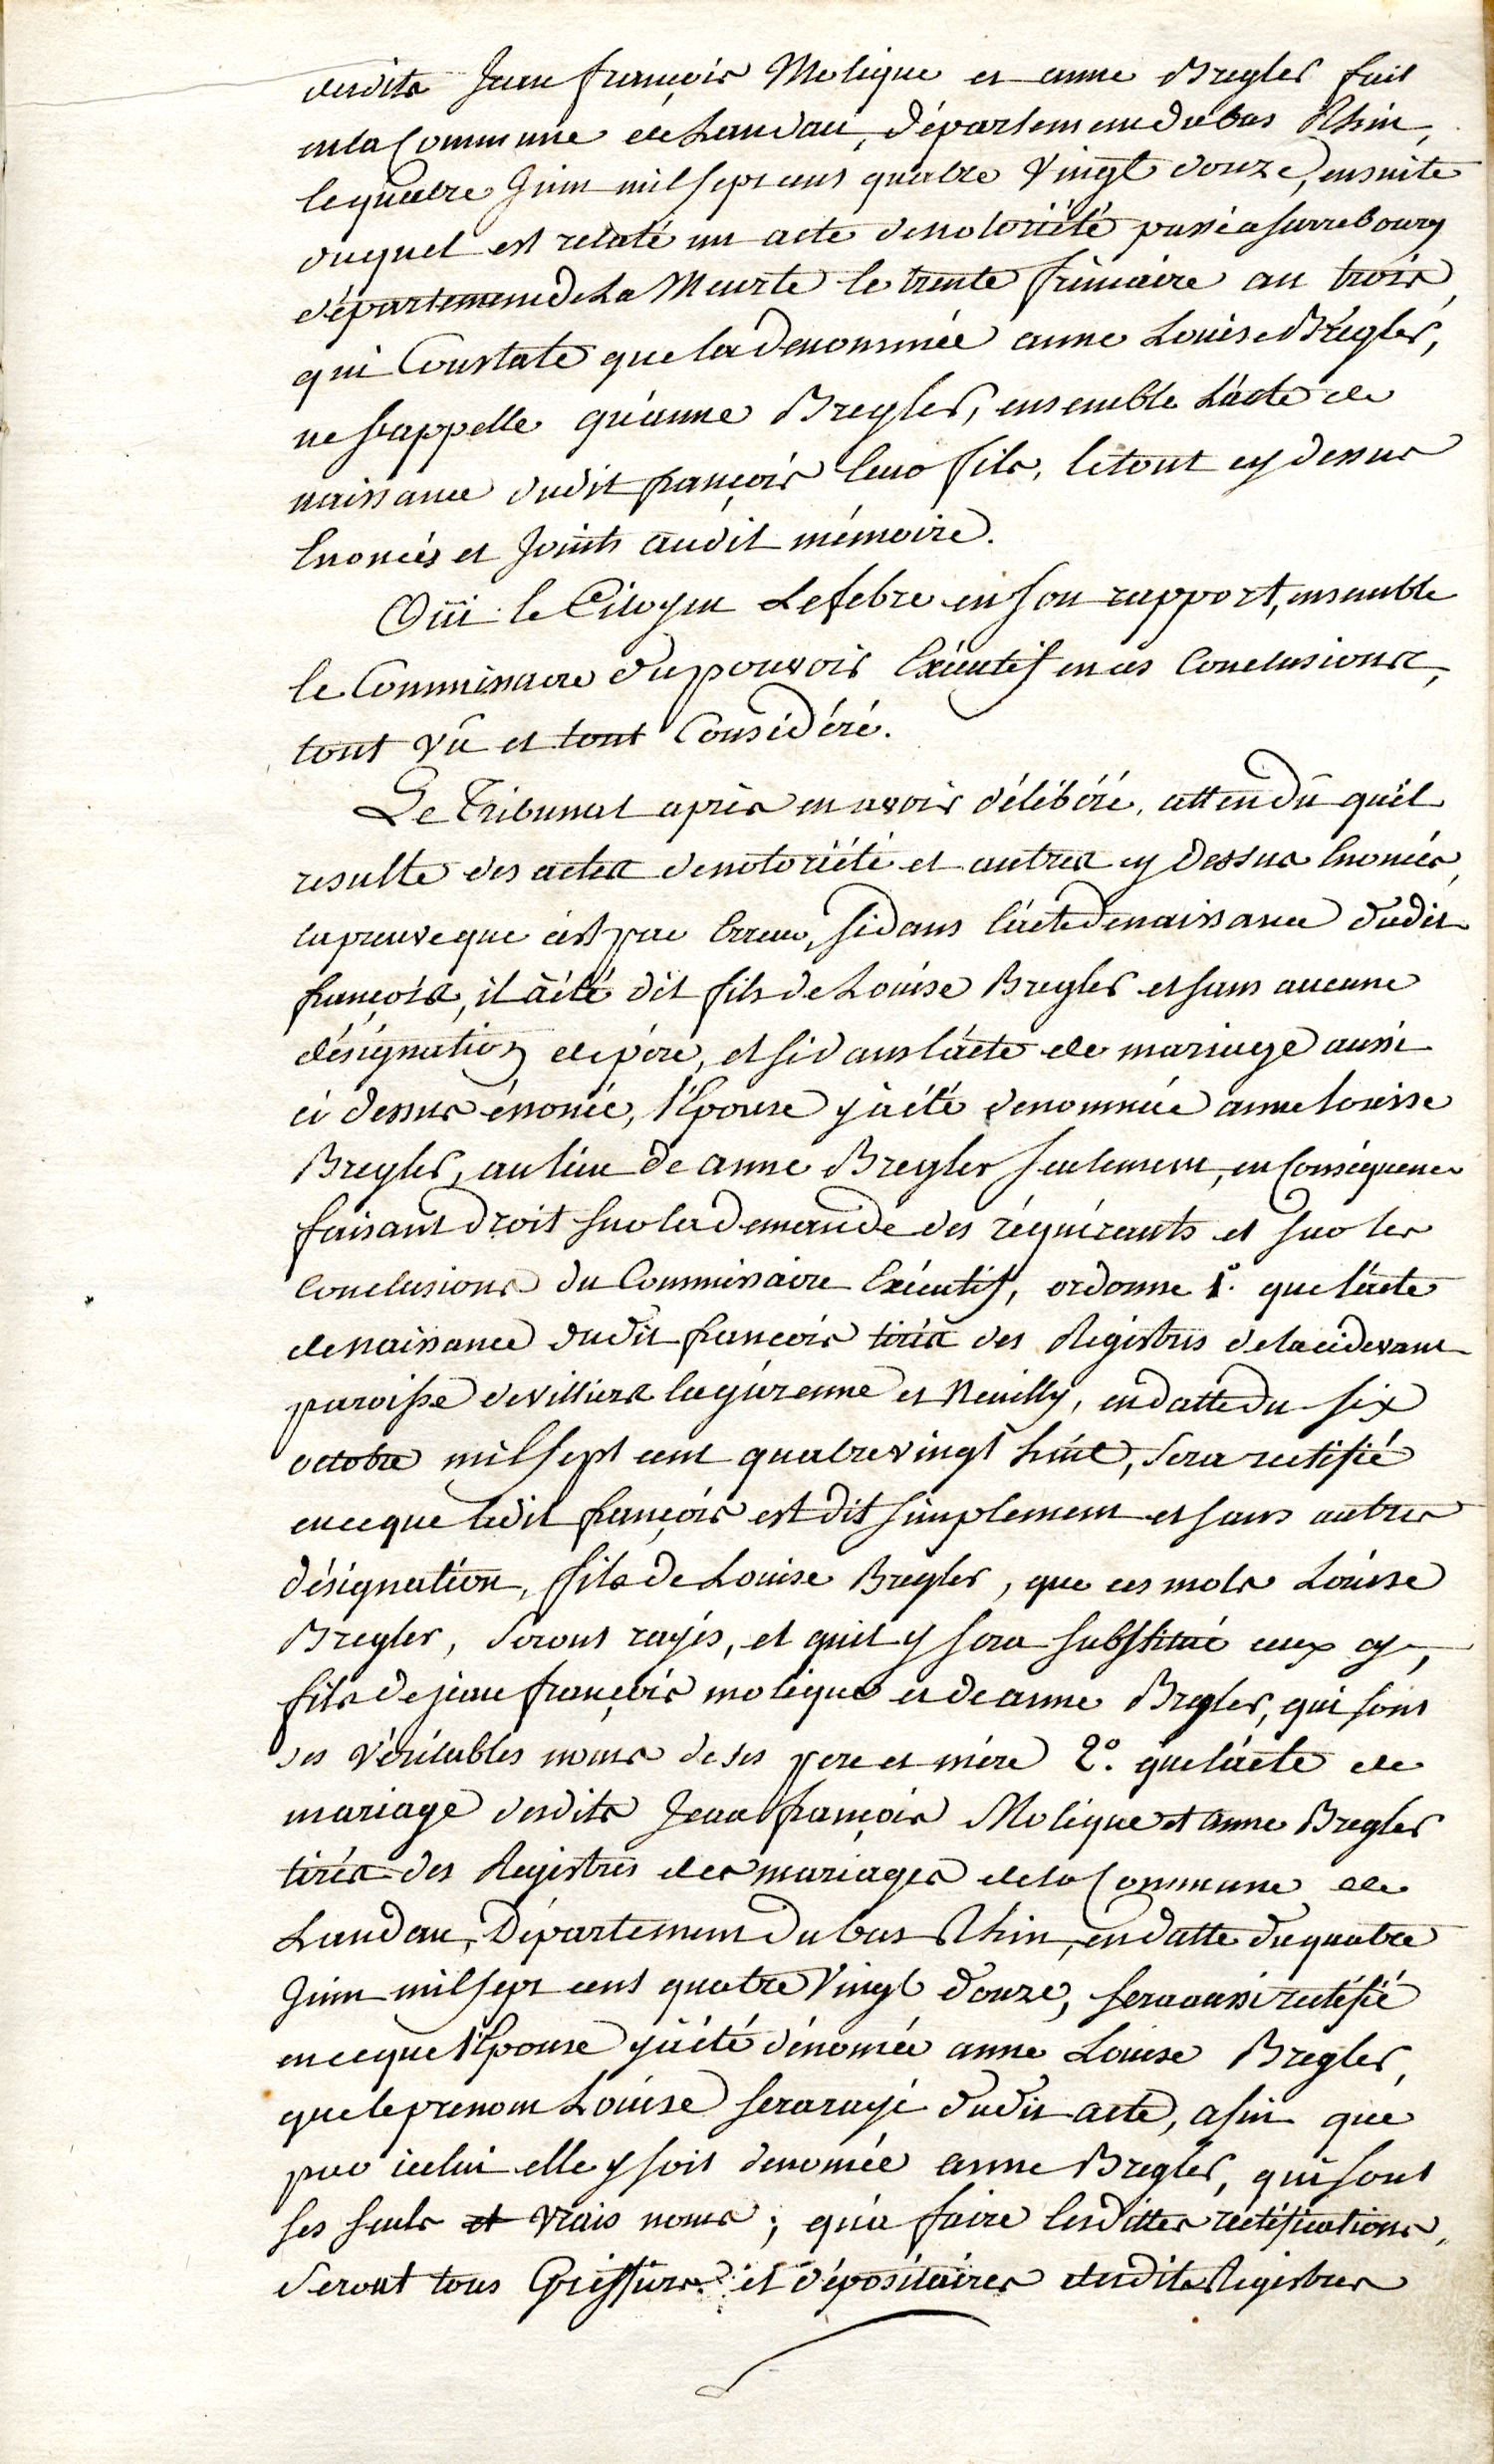 desdits Jean françois Molique et anne Bregler fait
en la Commune de Landau, département du bas Rhin,
le quatre Juin mil sept cens quatre Vingt douze, ensuite
duquel est relaté un acte denotoriété passé a Sarrebourg
département de La Meurte le trente frimaire an trois,
qui Constate que la denommée anne Louise Brégler,
ne s'appelle qu'anne Bregler, ensemble L'acte de
naissance dudit françois leur fils, letout cy dessus
Enoncés et Joints audit mémoire.
Oüi le Citoyen Lefebre en son rapport, ensemble
le Commissaire du pouvoir Exécutif en ses Conclusions,
tout Vû et tout Considéré.
Le Tribunal après en avoir délibéré, attendû qu'il
resulte des actes denotoriété et autres cy dessus Enoncés,
la preuve que c'est par Erreur, si dans l'acte denaissance dudit
françois, il a été dit fils de Louise Bregler et sans aucune
désignation de père, et si dans l'acte de mariage aussi
ci dessus énoncé, l'Epouse y a été denommée anne Louise
Bregler, au lieu de anne Bregler seulement, en Conséquence
faisant droit sur la demande des réquérants et sur les
Conclusions du Commissaire Exécutif, ordonne 1°. que l'acte
de naissance dudit francois tirés des Registres de la cidevant
paroisse de villiers lagarenne et Neuilly, en datte du six
octobre mil sept cent quatre vingt huit, sera rectifié
en ce que ledit françois est dit simplement et sans autres
désignation, fils de Louise Bregler, que ces mots Louise
Bregler, seront rayés, et quil y sera substitué ceux cy,
fils de jean françois molique et de anne Bregler, qui sont
les véritables noms de ses pere et mére 2°. que l'acte de
mariage desdits Jean françois Molique et anne Bregler
tirés des Registres des mariages de la Commune de
Landau, Département du bas Rhin, en datte du quatre
Juin mil sept cens quatre Vingt douze, sera aussi rectifié
en ce que l'Epouse y a été dénomée anne Louise Bregler,
que le prenom Louise sera rayé dudit acte, afin que
par icelui elle y soit denomée anne Bregler, qui sont
ses seuls et vrais noms; qu'a faire lesdittes rectifications,
seront tous Greffiers et dépositaires desdits Registres